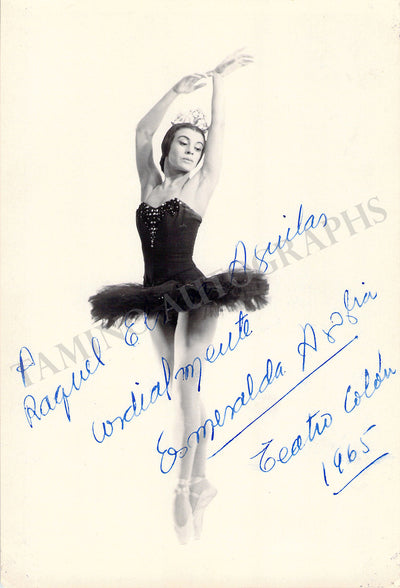 A
Raquel E. Aguilar
cordialmente
Esmeralda Agoglia
Teatro Colón
1965
TAMINO AUTOGRAPHS